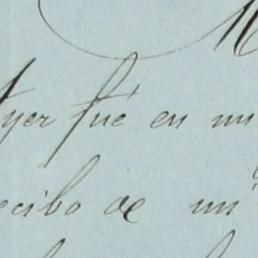 Ayer fué en mi
ecibo de un